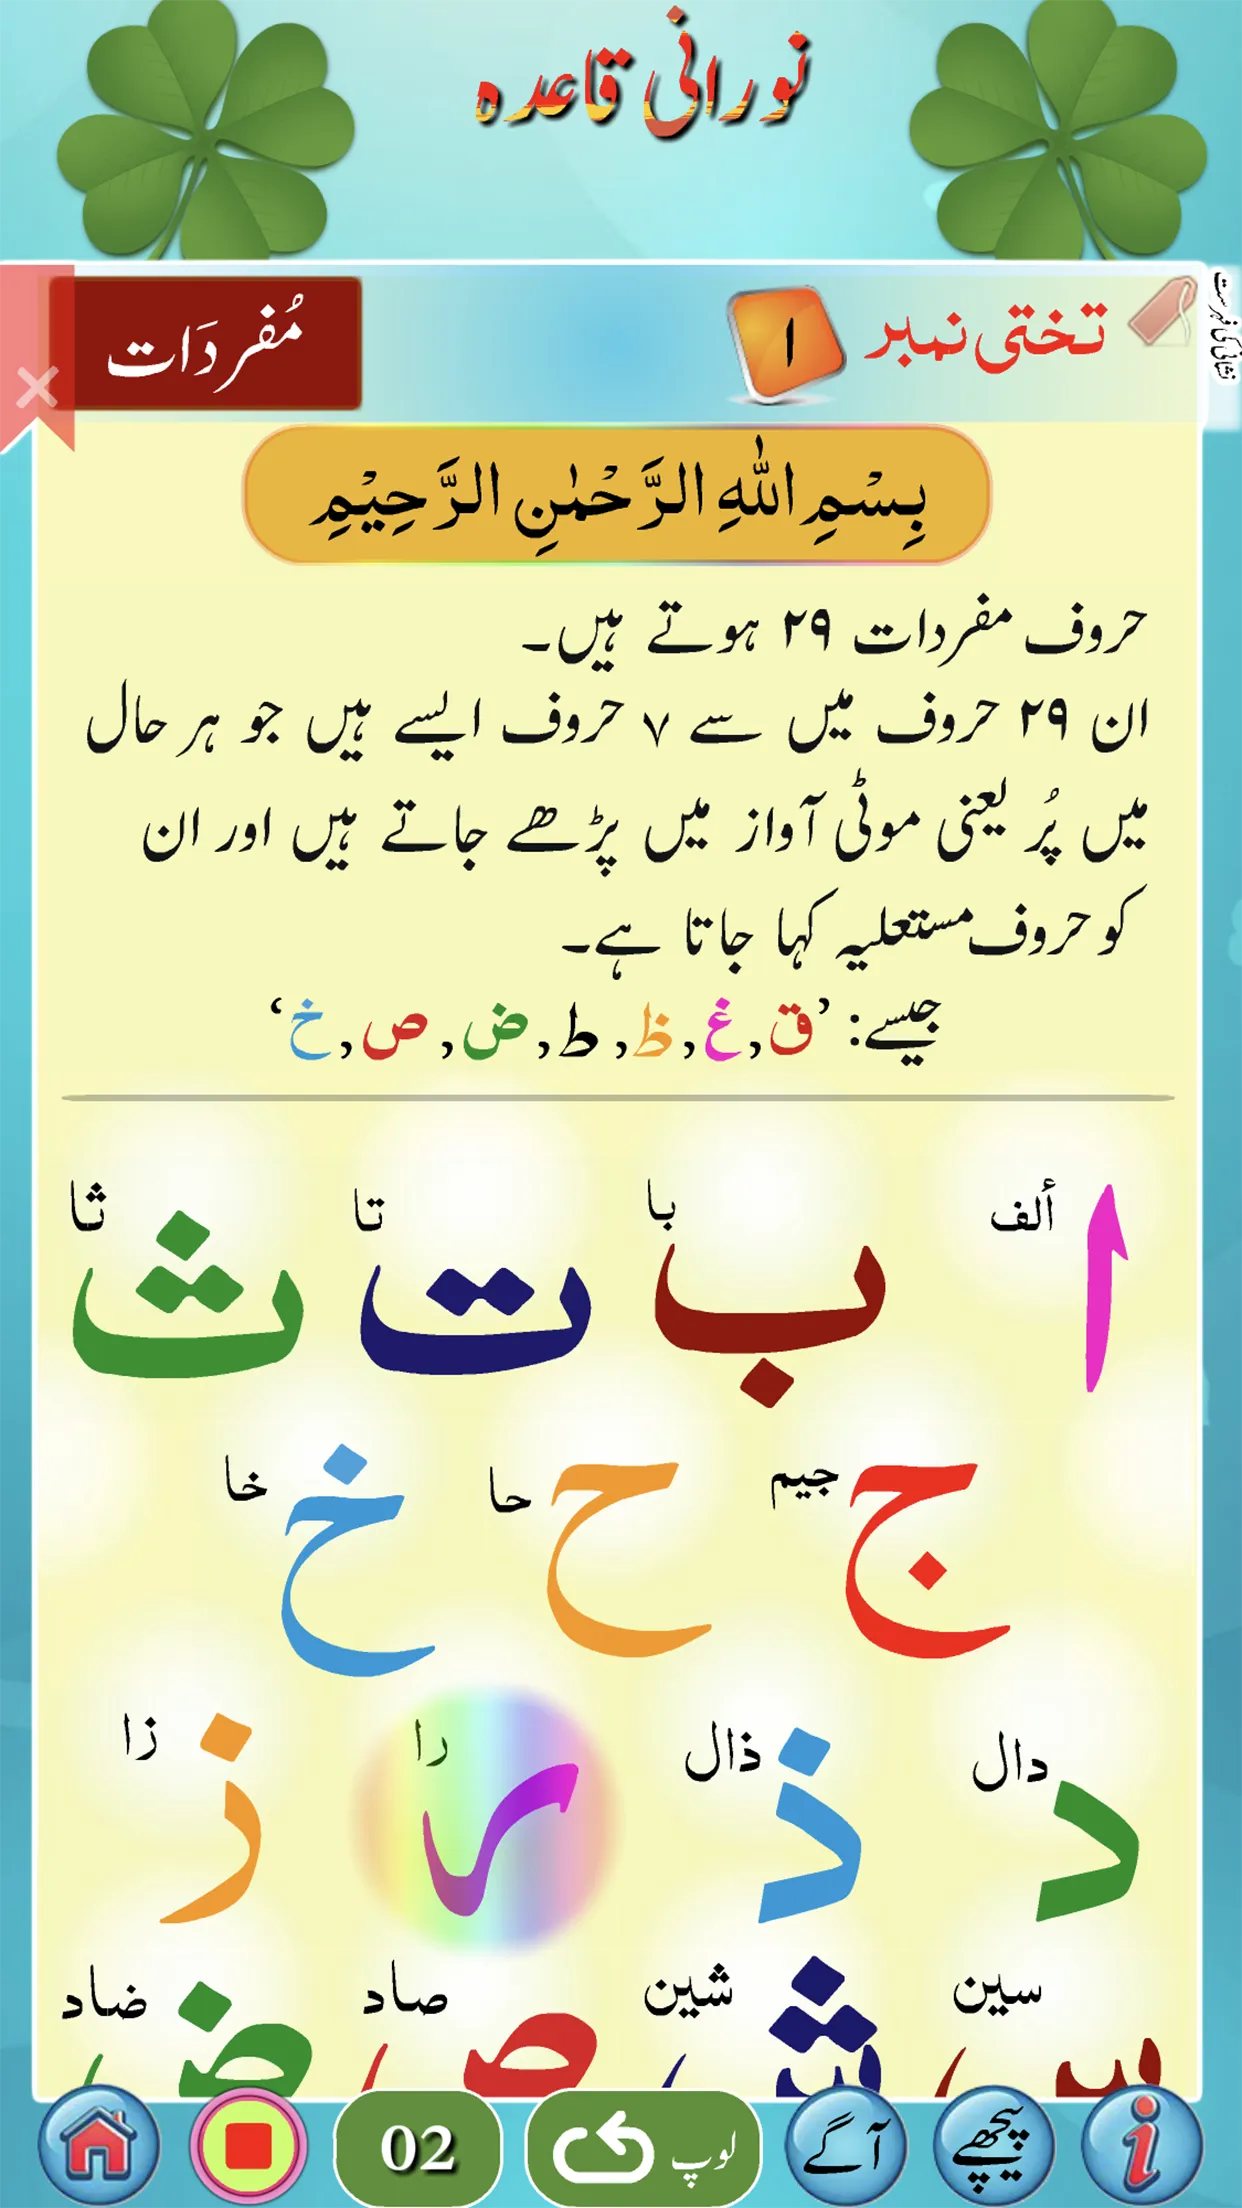 نورانی قاعدہ
نشانی کی فہرست
تختی نمبر ۱ مُفردَات
بِسْمِ اللّٰهِ الرَّحْمٰنِ الرَّحِیْمِ
حروف مفردات ۲۹ ہوتے ہیں۔
ان ۲۹ حروف میں سے ۷ حروف ایسے ہیں جو ہر حال
میں پُر یعنی موٹی آواز میں پڑھے جاتے ہیں اور ان
کو حروف مستعلیہ کہا جاتا ہے۔
جیسے: ’ق, غ, ظ, ط, ض, ص, خ‘
ا ألف ب با ت تا ث ثا
ج جیم ح حا خ خا
د دال ذ ذال ر را ز زا
س سین ش شین ص صاد ض ضاد
پیچھے آگے لوپ 02